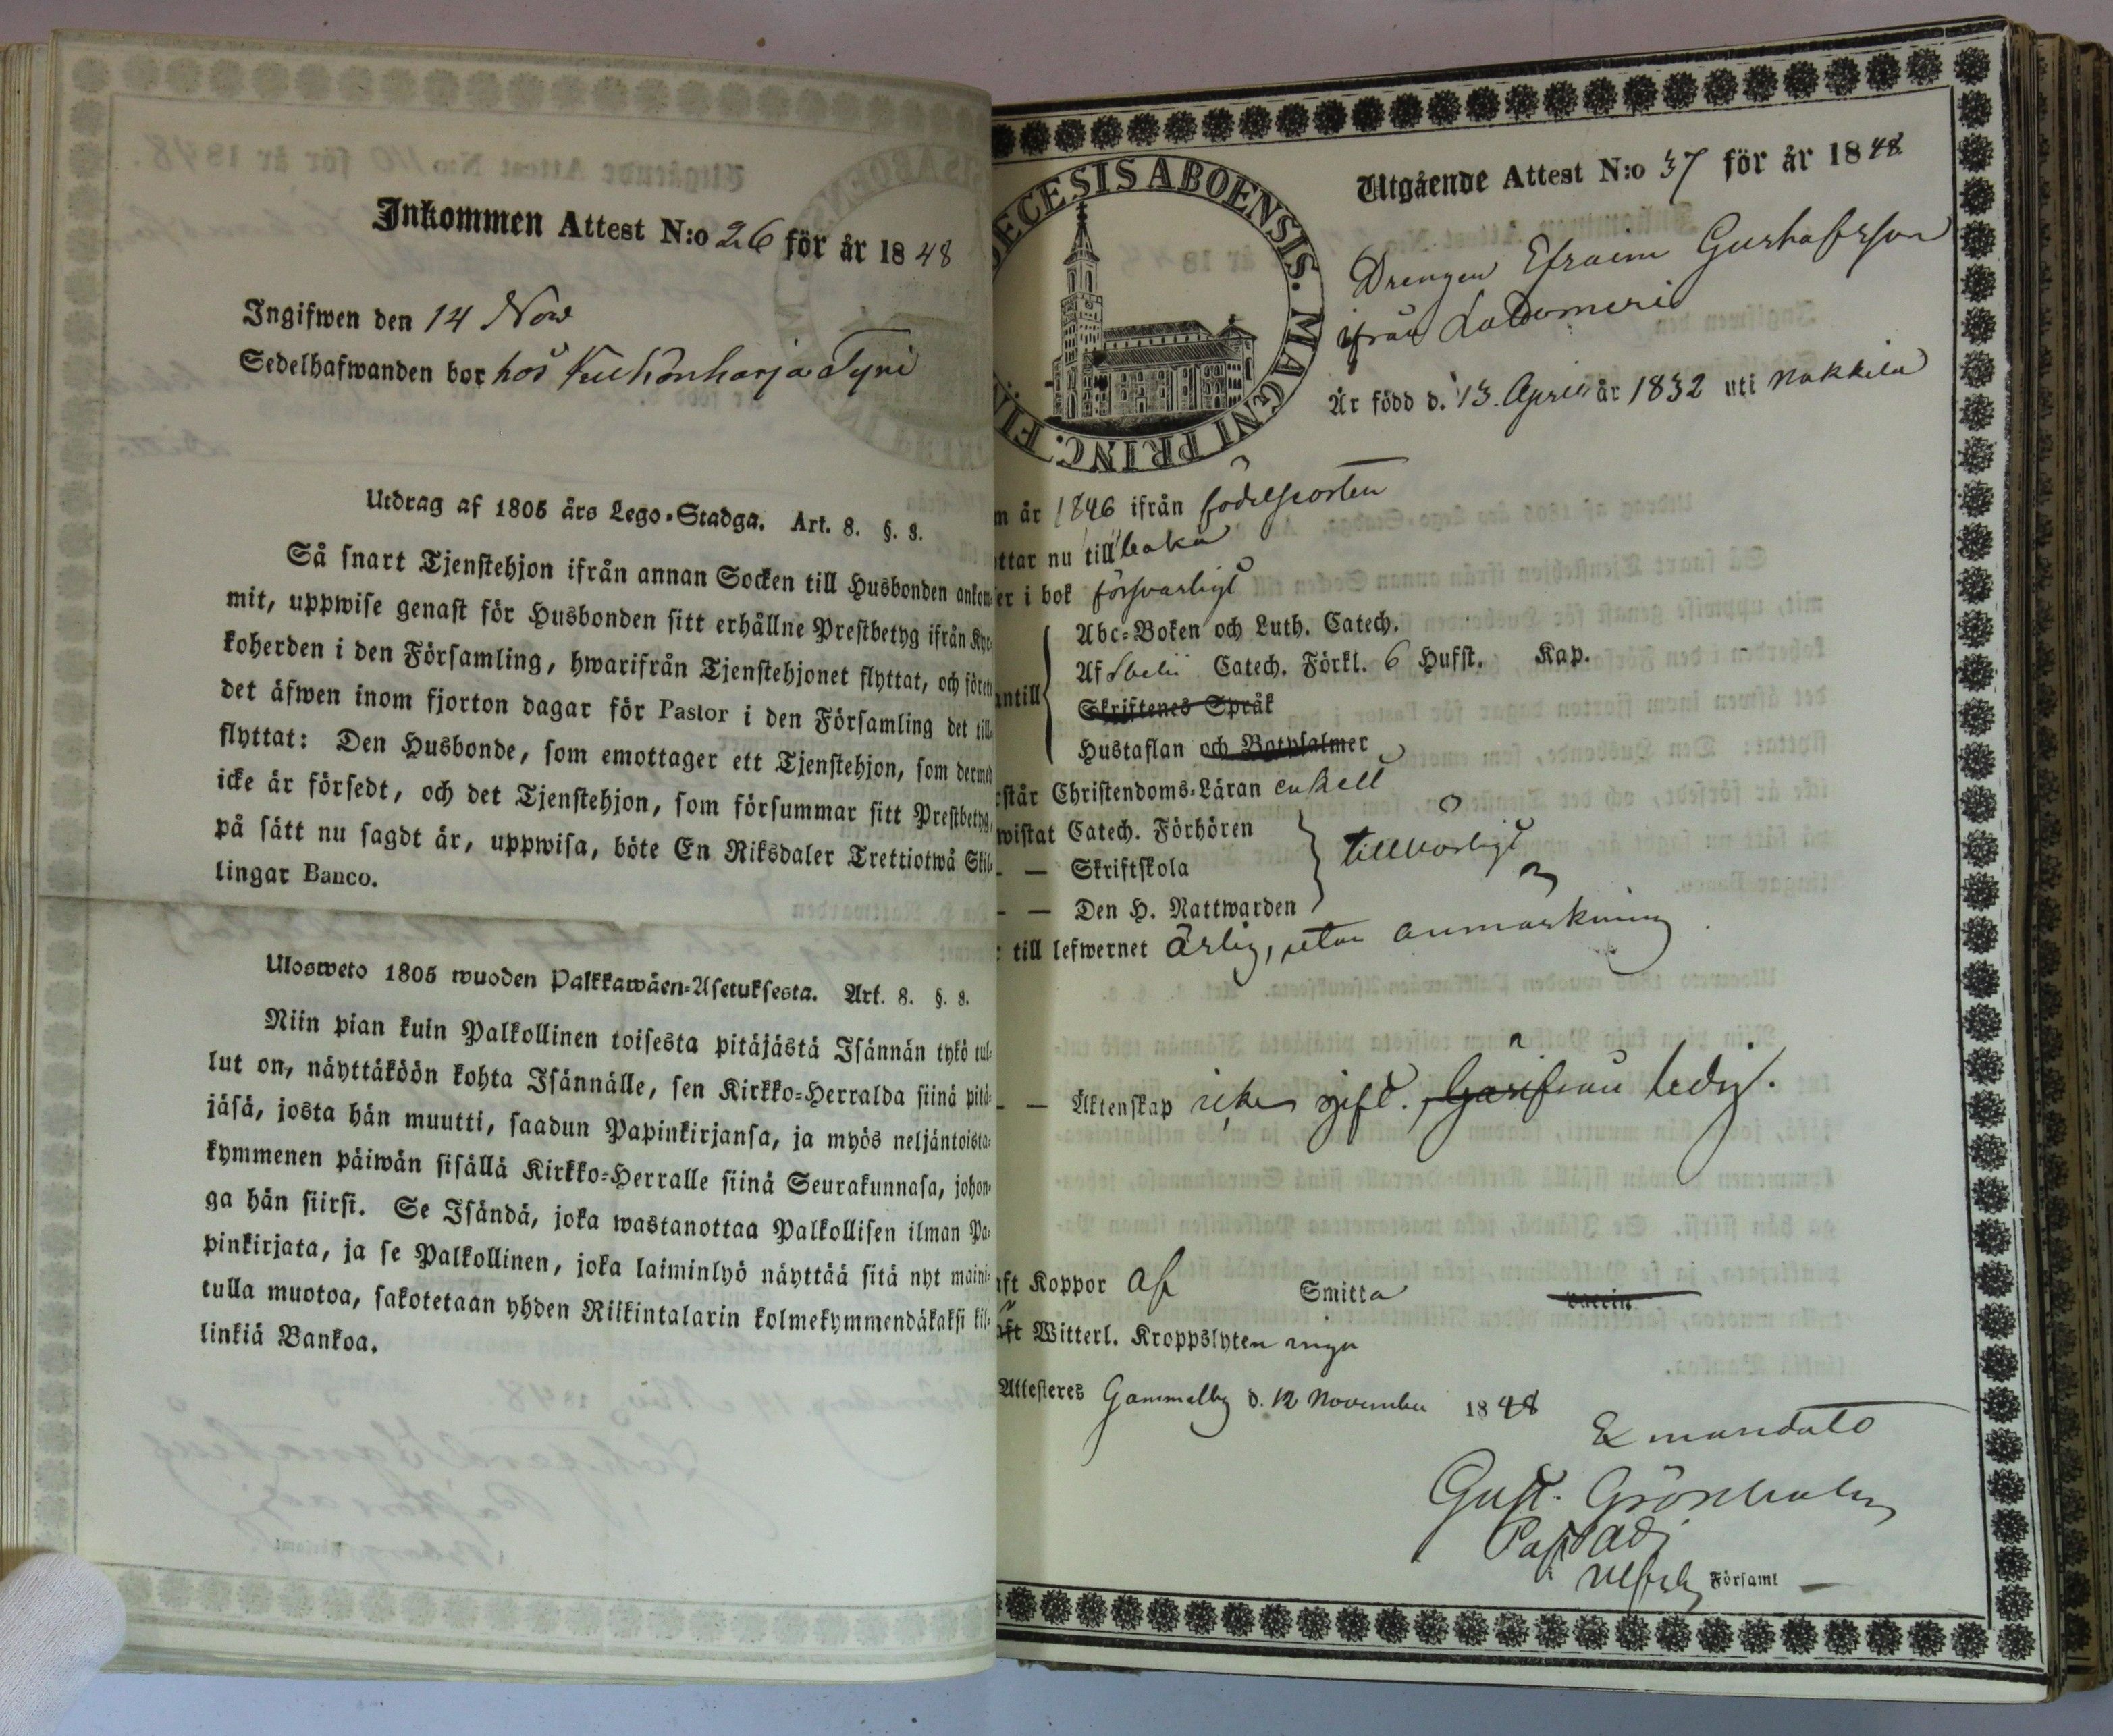 Inkommen Attest N:o 26 för år 1848
Ingifwen den 14 Nov
Sedelhafwanden bor hos
Utdrag af 1805 års Lego-Stadga. Art. 8. §. 3.
Så snart Tjenstehjon ifrån annan Socken till Husbonden ankom-
mit, uppwise genast för Husbonden sitt erhållne Prestbetyg ifrån Kyr-
koherden i den Församling, hwarifrån Tjenstehjonet flyttat, och förete
det äfwen inom fjorton dagar för Pastor i den Församling det till-
flyttat: Den Husbonde, som emottager ett Tjenstehjon, som dermed
icke är försedt, och det Tjenstehjon, som försummar sitt Prestbetyg,
på sätt nu sagdt är, uppwisa, böte En Riksdaler Trettiotwå Skil-
lingar Banco.
Ulosweto 1805 wuoden Palkkawäen-Asetuksesta. Art. 8. §. 3.
Niin pian kuin Palkollinen toisesta pitäjästä Isännän tykö tul-
lut on, näyttäköön kohta Isännälle, sen Kirkko-Herralda siinä pitä-
jäsä, josta hän muutti, saadun Papinkirjansa, ja myös neljäntoista-
kymmenen päiwän sisällä Kirkko-Herralle siinä Seurakunnasa, johon-
ga hän siirsi. Se Isändä, joka wastanottaa Palkollisen ilman Pa-
pinkirjata, ja se Palkollinen, joka laiminlyö näyttää sitä nyt maini-
tulla muotoa, sakotetaan yhden Riikintalarin kolmekymmendäkaksi kil-
linkiä Bankoa.
ECESIS ABOENSIS. MAGNI PRINC. FIN
Utgående Attest N:o 37 för år 1848
Drengen Efraim Gustafsson
ifrån
Är född d. 13 April år 1832 uti Nakkila
m år 1846 ifrån födelseorten
ttar nu till baka
er i bok försvarligt
Abc-Boken och Luth. Catech.
Af Catech. Förkl. 6 Hufst. Kap.
antill
Skriftenes Språk
Hustaflan och Botpsalmer
rstår Christendoms-Läran enkelt
wistat Catech. Förhören
- — Skriftskola tillbörligt
- — Den H. Nattwarden
: till lefwernet ärlig, utan anmärkning
- — Äktenskap icke gift. ledig.
aft Koppor af Smitta
aft Witterl. Kroppslyten inga
Attesteres Gammelby d. 12 November 1848
Ex mandato
Gust. Grönholm
Past adj
Ulfsby Församl